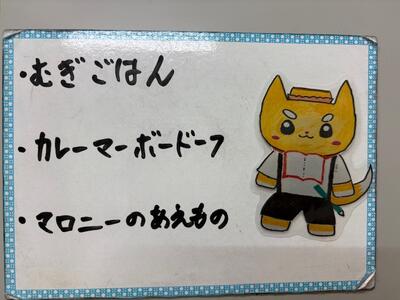 ・むぎごはん
・カレーマーボードーフ
・マロニーのあえもの